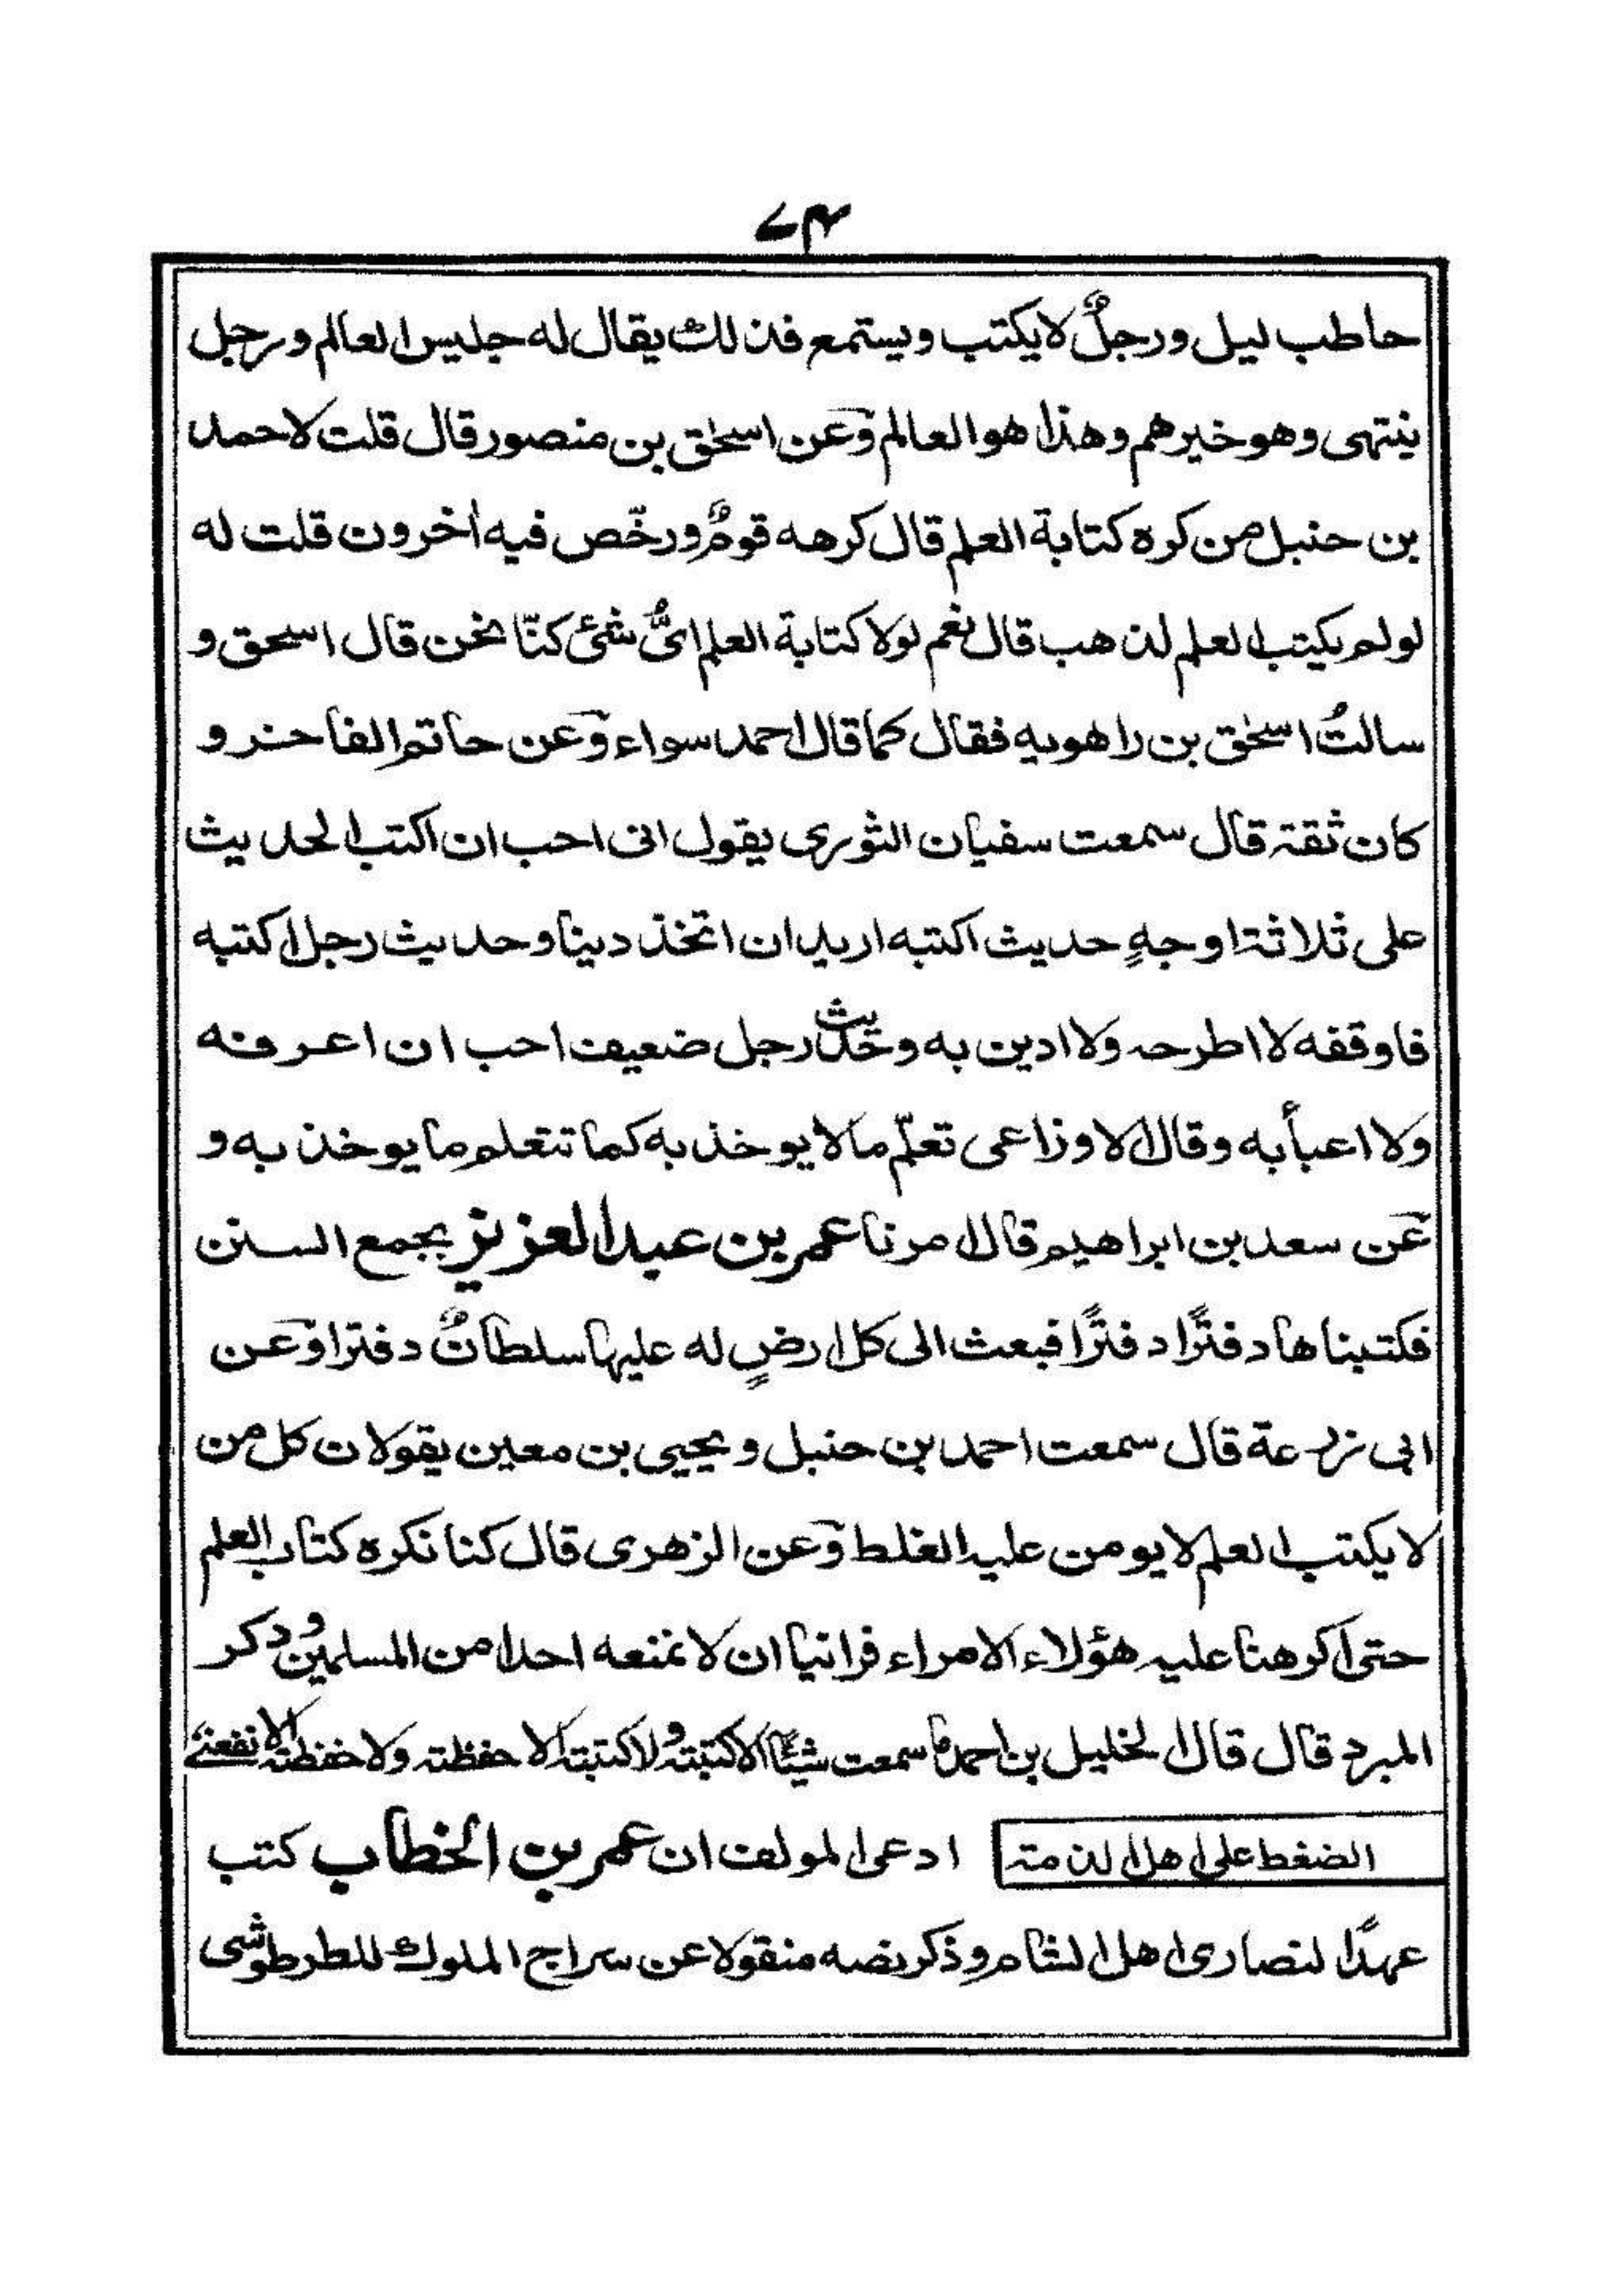 ۷۴
حاطب ليل ورجلٌ لا يكتب ويستمع فذلك يقال له جليس العالم ورجل
ينتهى وهو خيرهم وهذا هو العالم وعن اسحٰق بن منصور قال قلت لاحمد
بن حنبل من كره كتابة العلم قال كرهه قومٌ ورخّص فيه اٰخرون قلت له
لو لم يكتب العلم لذهب قال نعم لولا كتابة العلم اىُّ شئ كنّا نحن قال اسحق و
سالتُ اسحٰق بن راهويه فقال كما قال احمد سواء وعن حاتم الفاخر و
كان ثقة قال سمعت سفيان الثورى يقول انى احب ان اكتب الحديث
على ثلاثة اوجهٍ حديث اكتبه اريد ان اتخذ دينا وحديث رجل اكتبه
فاوقفه لا اطرحه ولا ادين به وحديث رجل ضعيف احب ان اعرفه
ولا اعبأ به وقال الاوزاعى تعلّم ما لا يوخذ به كما تتعلم ما يوخذ به و
عن سعد بن ابراهيم قال امرنا عمر بن عبد العزيز بجمع السنن
فكتبناها دفترًا دفترًا فبعث الى كل ارضٍ له عليها سلطانٌ دفترا وعن
ابى زرعة قال سمعت احمد بن حنبل ويحيى بن معين يقولان كل من
لا يكتب العلم لا يومن عليه الغلط وعن الزهرى قال كنا نكره كتاب العلم
حتى اكرهنا عليه هؤلاء الامراء فراينا ان لا نمنعه احدا من المسلمين وذكر
المبرد قال قال الخليل بن احمد ما سمعت شيئًا الا كتبته ولا كتبته الا حفظته ولا حفظته الا نفعنى
الضغط على اهل الذمة ادعى المولف ان عمر بن الخطاب كتب
عهدًا لنصارى اهل الشام وذكر نصه منقولا عن سراج الملوك للطرطوشى